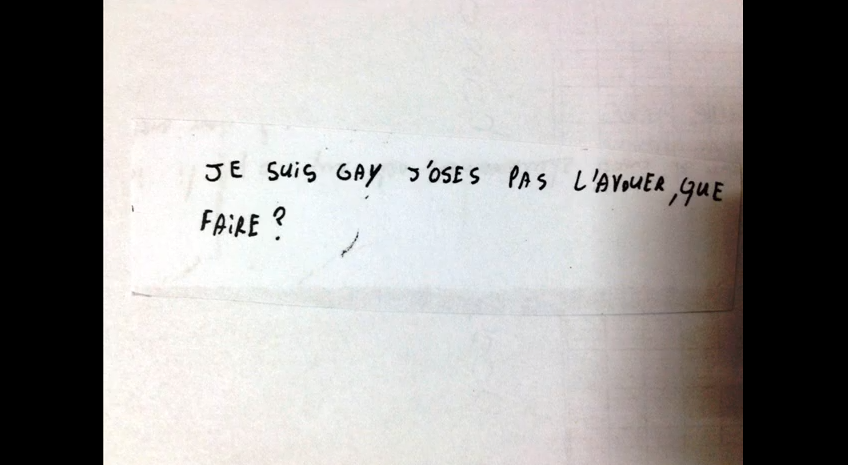 JE SUiS GAY J'OSES PAS L'AVOUER, QUE
FAiRE ?